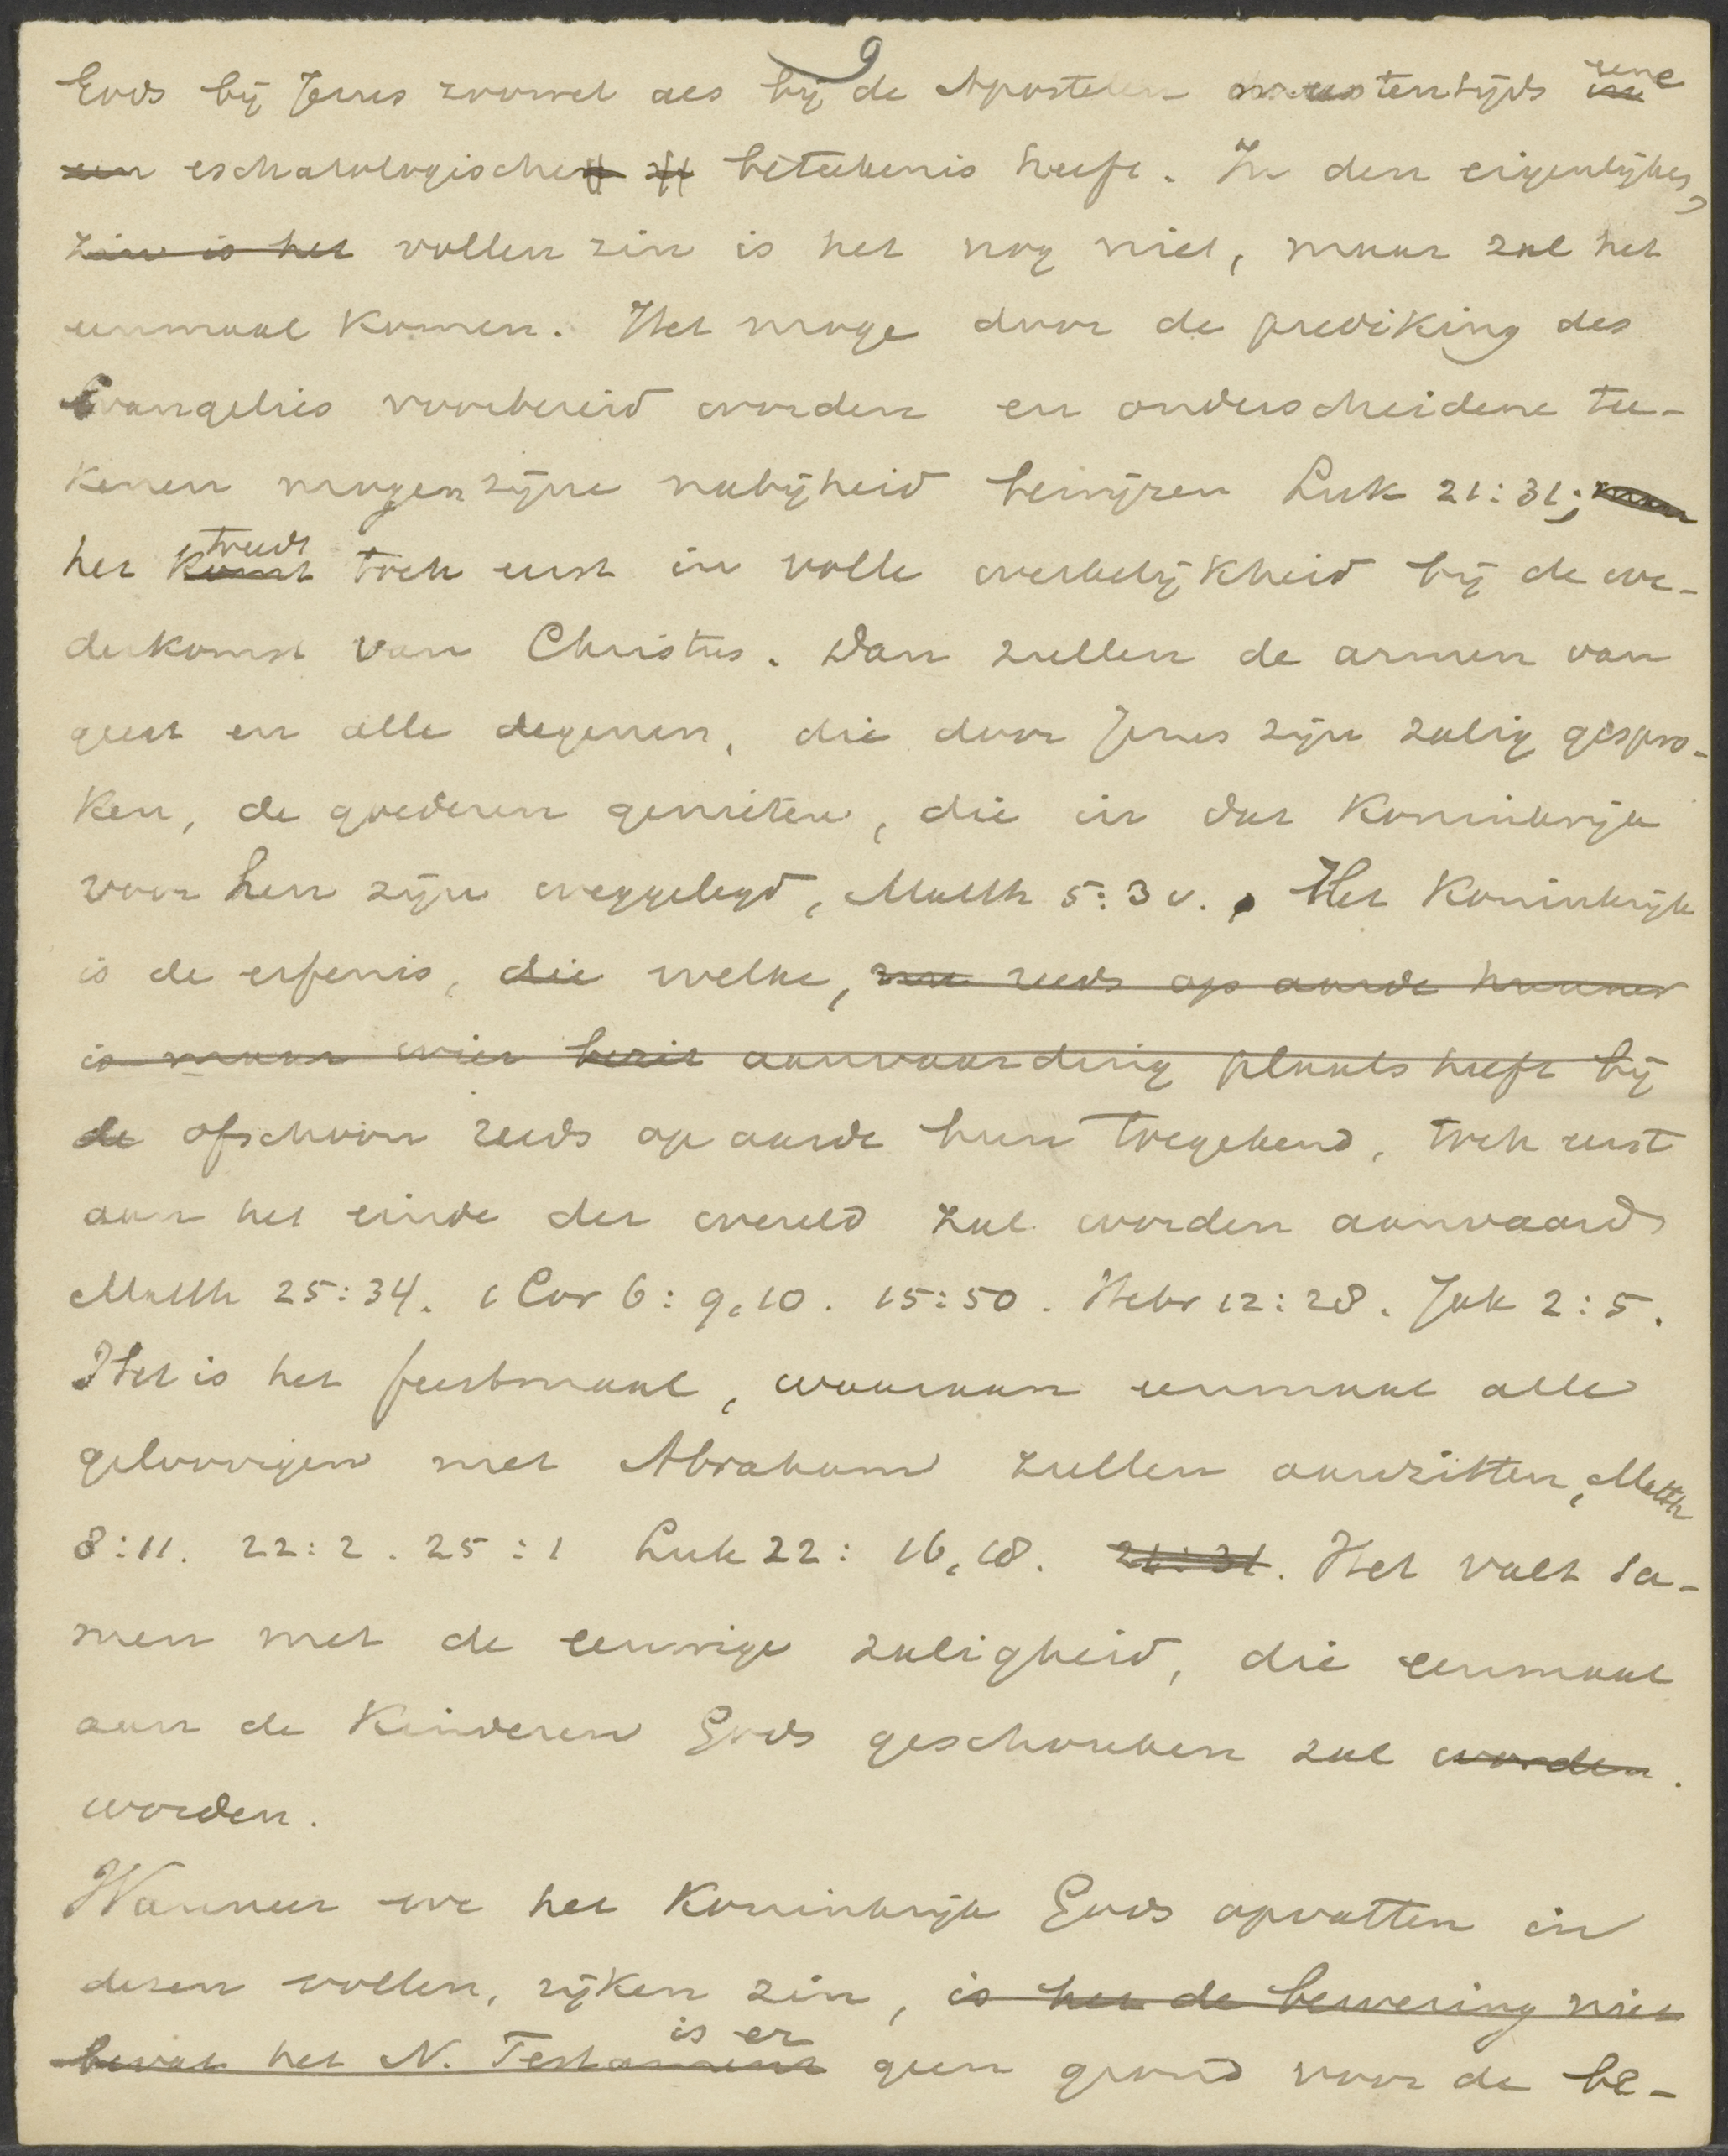 9
Gods bij Jezus zoowel als bij de Apostelen meestentijds in eene
een eschatologischen zi beteekenis heeft. In den eigenlijken,
zin is het vollen zin is het nog niet, maar zal het
eenmaal komen. Het moge door de prediking des
Evangelies voorbereid worden en onderscheidene tee-
kenen mogen zijne nabijheid bewijzen Luk 21:31; maar
het komt treedt toch eerst in volle werkelijkheid bij de we-
derkomst van Christus. Dan zullen de armen van
geest en alle degenen, die door Jezus zijn zalig gespro-
ken, de goederen genieten, die in dat Koninkrijk
voor hen zijn weggelegd, Matth 5:3 v. Het Koninkrijk
is de erfenis, die welke, reeds op aarde hunner
is maar wier bezit aanvaarding plaats heeft bij
de ofschoon reeds op aarde hun toegekend, toch eerst
aan het einde der wereld zal worden aanvaard
Matth 25:34. 1 Cor 6:9,10. 15:50. Hebr 12:28. Jak 2:5.
Het is het feestmaal, waaraan eenmaal alle
geloovigen met Abraham zullen aanzitten, Matth
8:11. 22:2. 25:1 Luk 22: 16,18. 21:31. Het valt sa-
men met de eeuwige zaligheid, die eenmaal
aan de kinderen Gods geschonken zal worden.
worden.
Wanneer we het Koninkrijk Gods opvatten in
dezen vollen, rijken zin, is het de bewering niet
bevat het N. Testament is er geen grond voor de be-